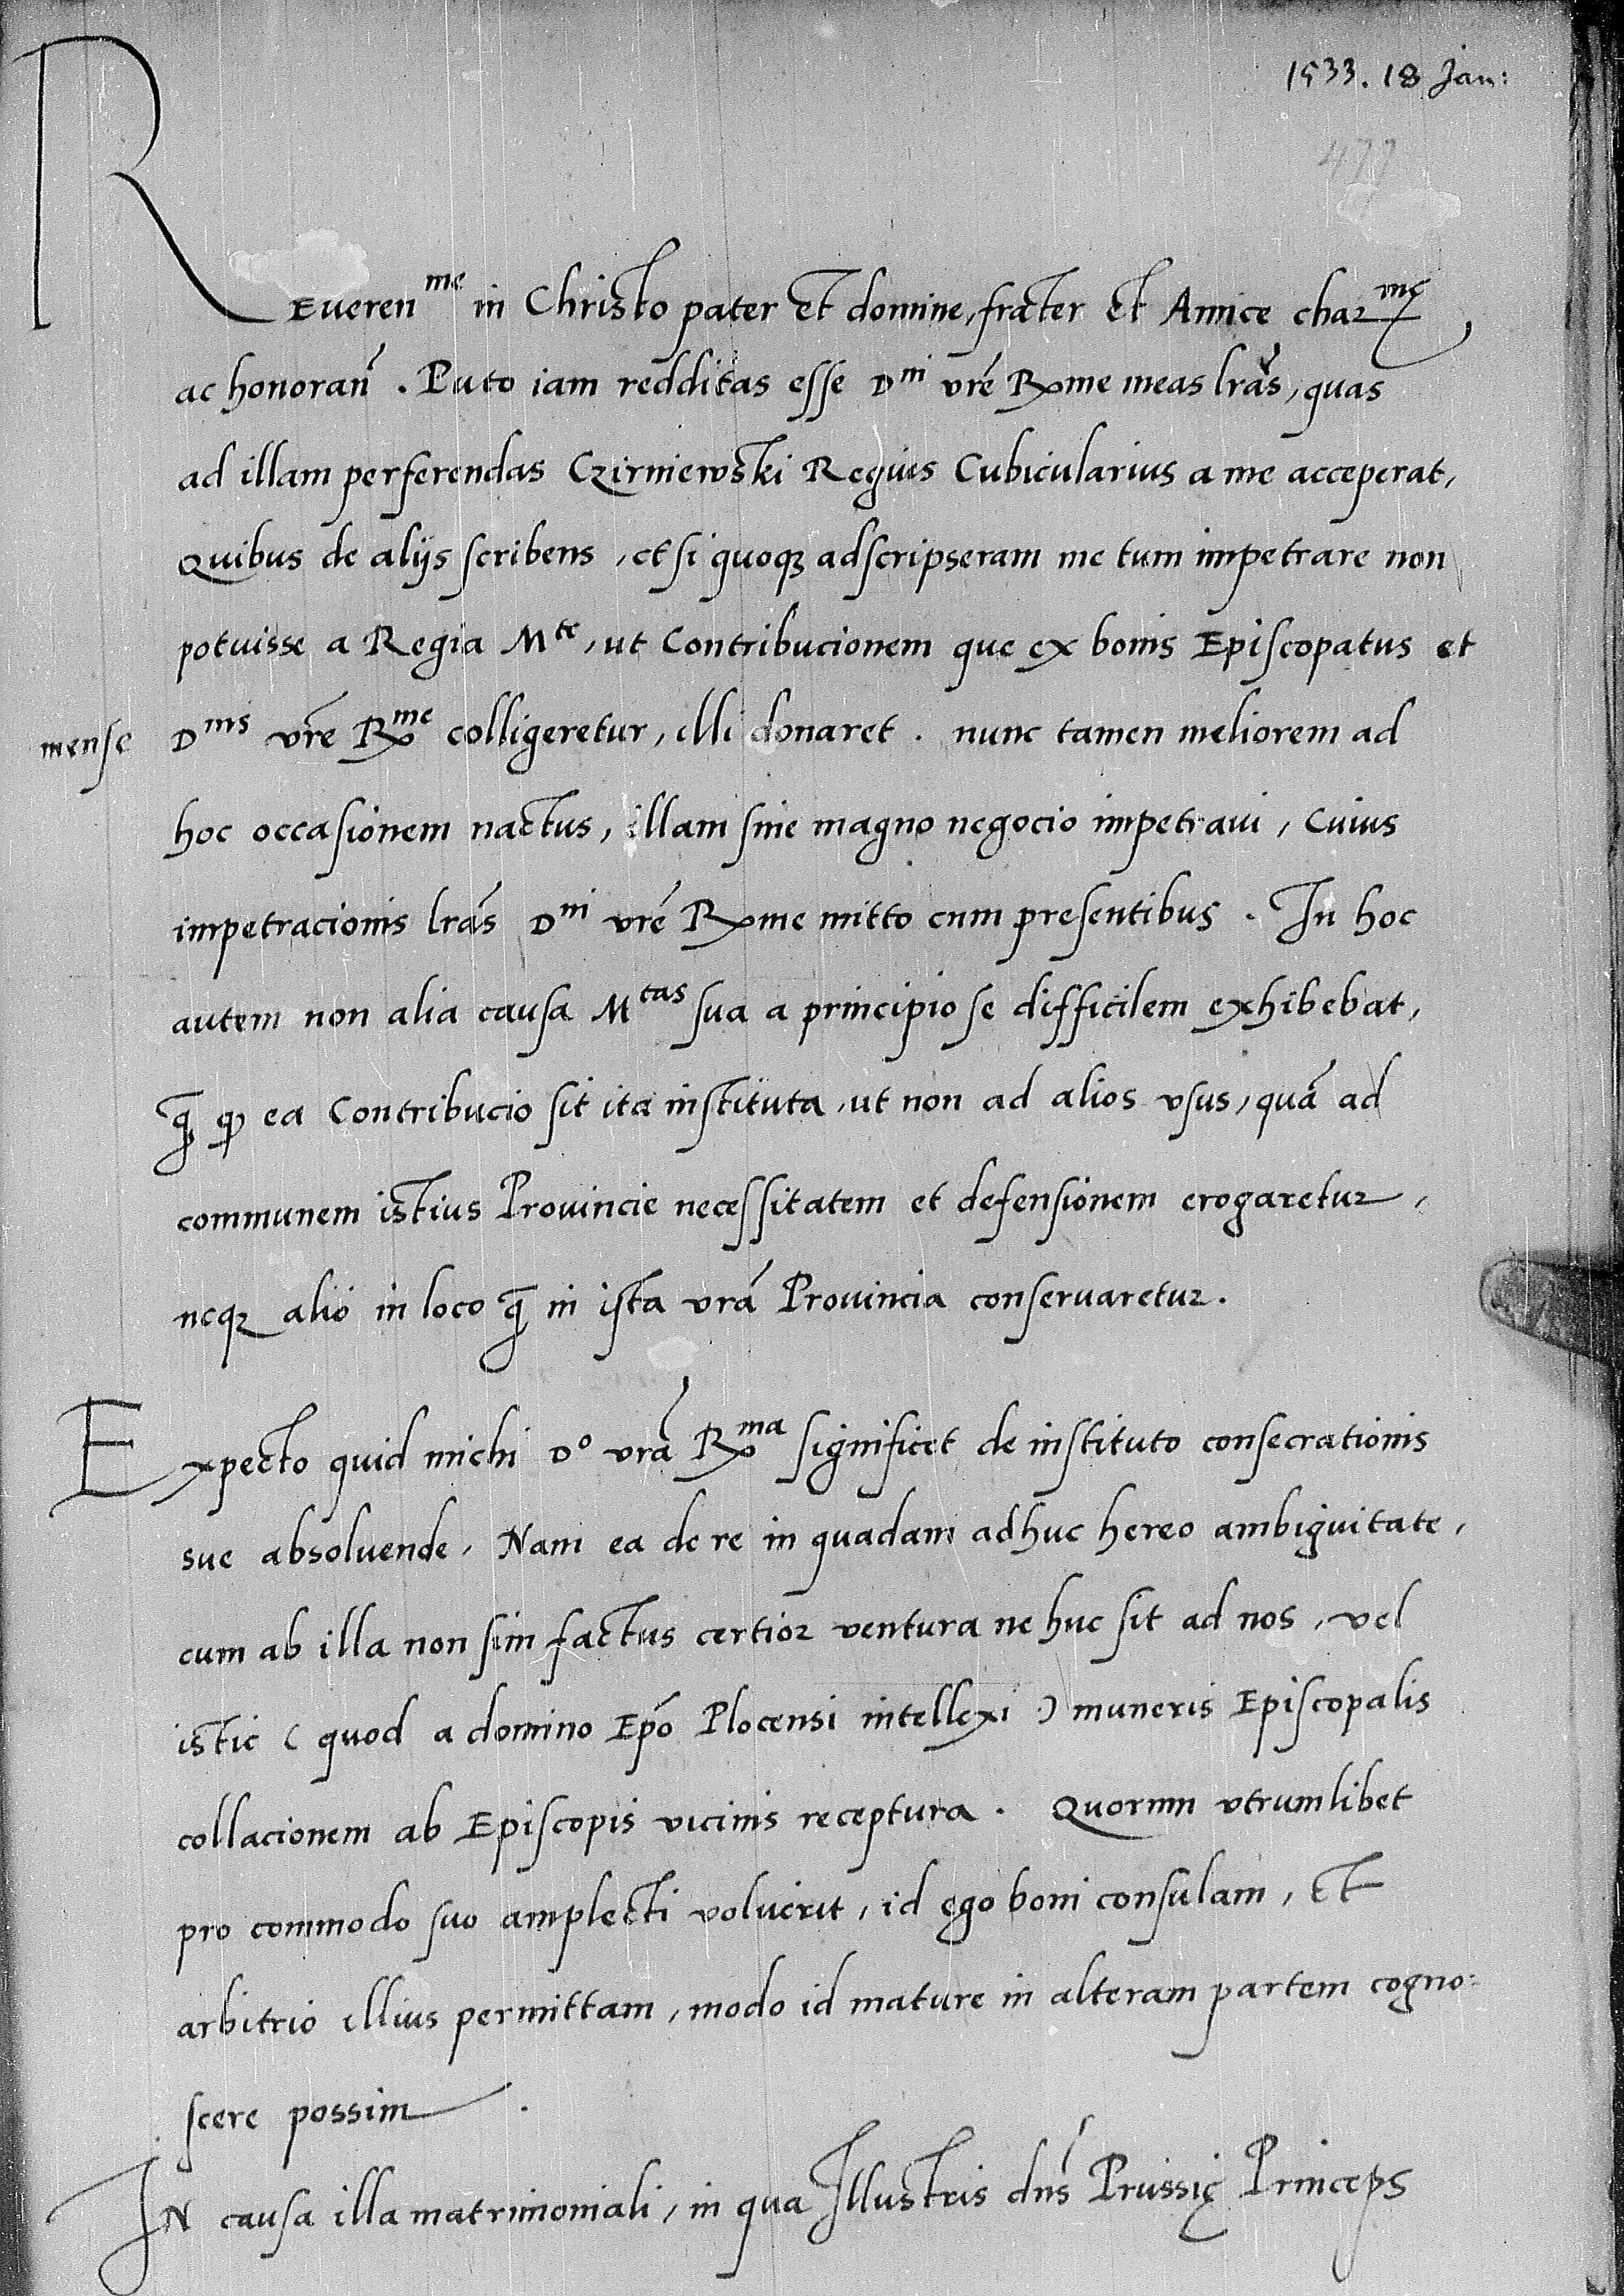 1533. 18 Jan:
477
REueren^me in Christo pater et domine, frater et Amice char^me,
ac honoran̄. Puto iam redditas esse D^ni vrē Rx̄me meas lrās, quas
ad illam perferendas Czirniewski Regius Cubicularius a me acceperat,
Quibus de alijs scribens, etsi quoqꝫ adscripseram me tum impetrare non
potuisse a Regia M^te, ut Contribucionem que ex bonis Episcopatus et
mense D^nis vrē R^me colligeretur, illi donaret. nunc tamen meliorem ad
hoc occasionem nactus, illam sine magno negocio impetraui, Cuius
impetracionis lrās D^ni vrē Rx̄me mitto cum presentibus. In hoc
autem non alia causa M^tas sua a principio se difficilem exhibebat,
q̄ ꝙ ea Contribucio sit ita instituta, ut non ad alios vsus, quā ad
communem istius Prouincie necessitatem et defensionem erogaretur,
neqꝫ alio in loco q̄ in ista vrā Prouincia conseruaretur.
Expecto quid michi D^o vrā R^ma significet de instituto consecrationis
sue absoluende. Nam ea de re in quadam adhuc hereo ambiguitate,
cum ab illa non sim factus certior ventura ne huc sit ad nos, vel
istic (quod a domino Epō Plocensi intellexi) muneris Episcopalis
collacionem ab Episcopis vicinis receptura. Quorum vtrumlibet
pro commodo suo amplecti voluerit, id ego boni consulam, Et
arbitrio illius permittam, modo id mature in alteram partem cogno:
scere possim.
IN causa illa matrimoniali, in qua Illustris dn̄s Prussię Princeps